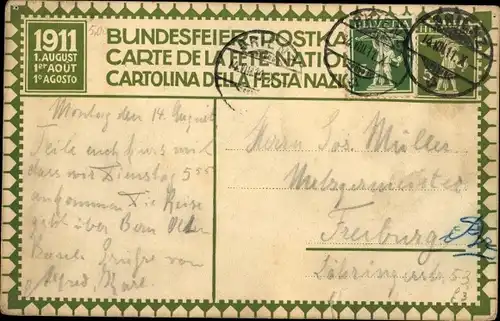 1911
1. AUGUST
1ER AOÛT
1º AGOSTO
BUNDESFEIER-POSTKA
CARTE DE LA FÊTE NATION
CARTOLINA DELLA FESTA NAZI
HELVETIA
Montag den 14. August
Teile euch kurz mit
dass wir Dienstag 5 55
ankommen. Die Reise
geht über Bern Olten
Basel. Grüsse von
Alfred, Karl.
Herrn Jos. Müller
Metzgermeister
Freiburg
Zähringerstr. 53